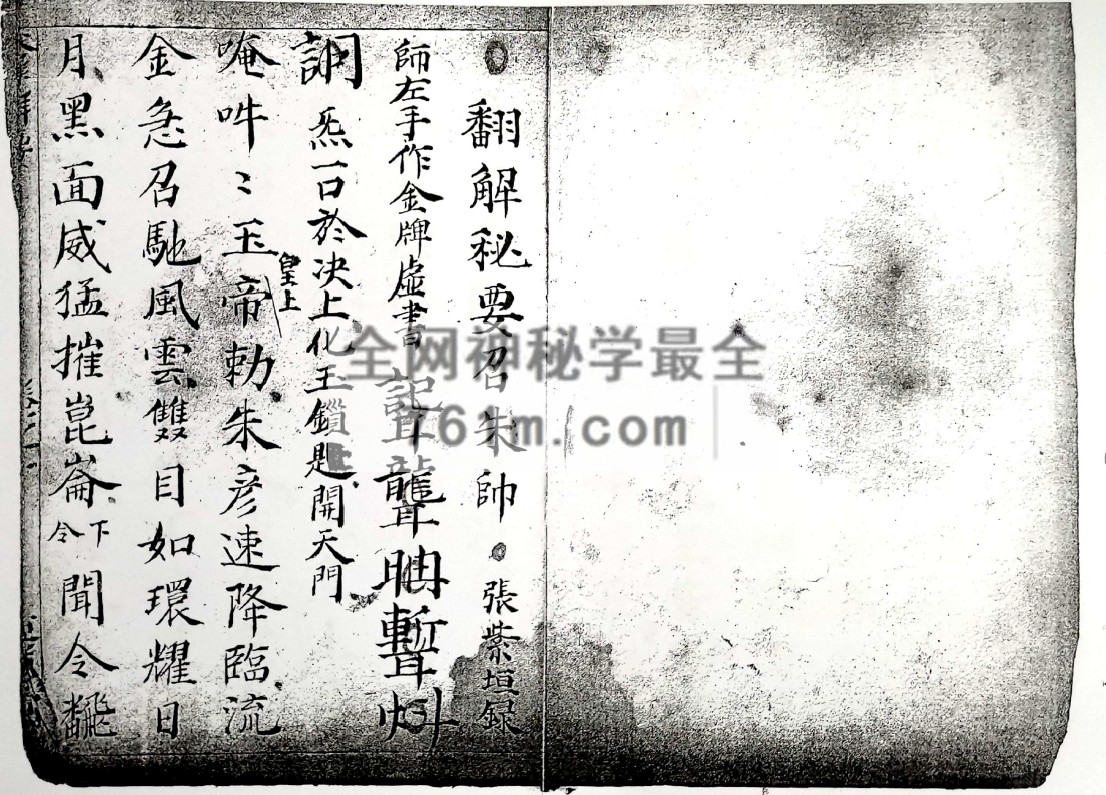 翻解秘要召朱帥 張紫垣録
師左手作金牌虛書
炁一口於决上化玉鎖匙開天門
唵吽〻玉帝勅朱彦速降臨流
皇上
金急召馳風雲雙目如環耀日
月黑面威猛摧崑崙下令聞令飜
全网神秘学最全
761m.com